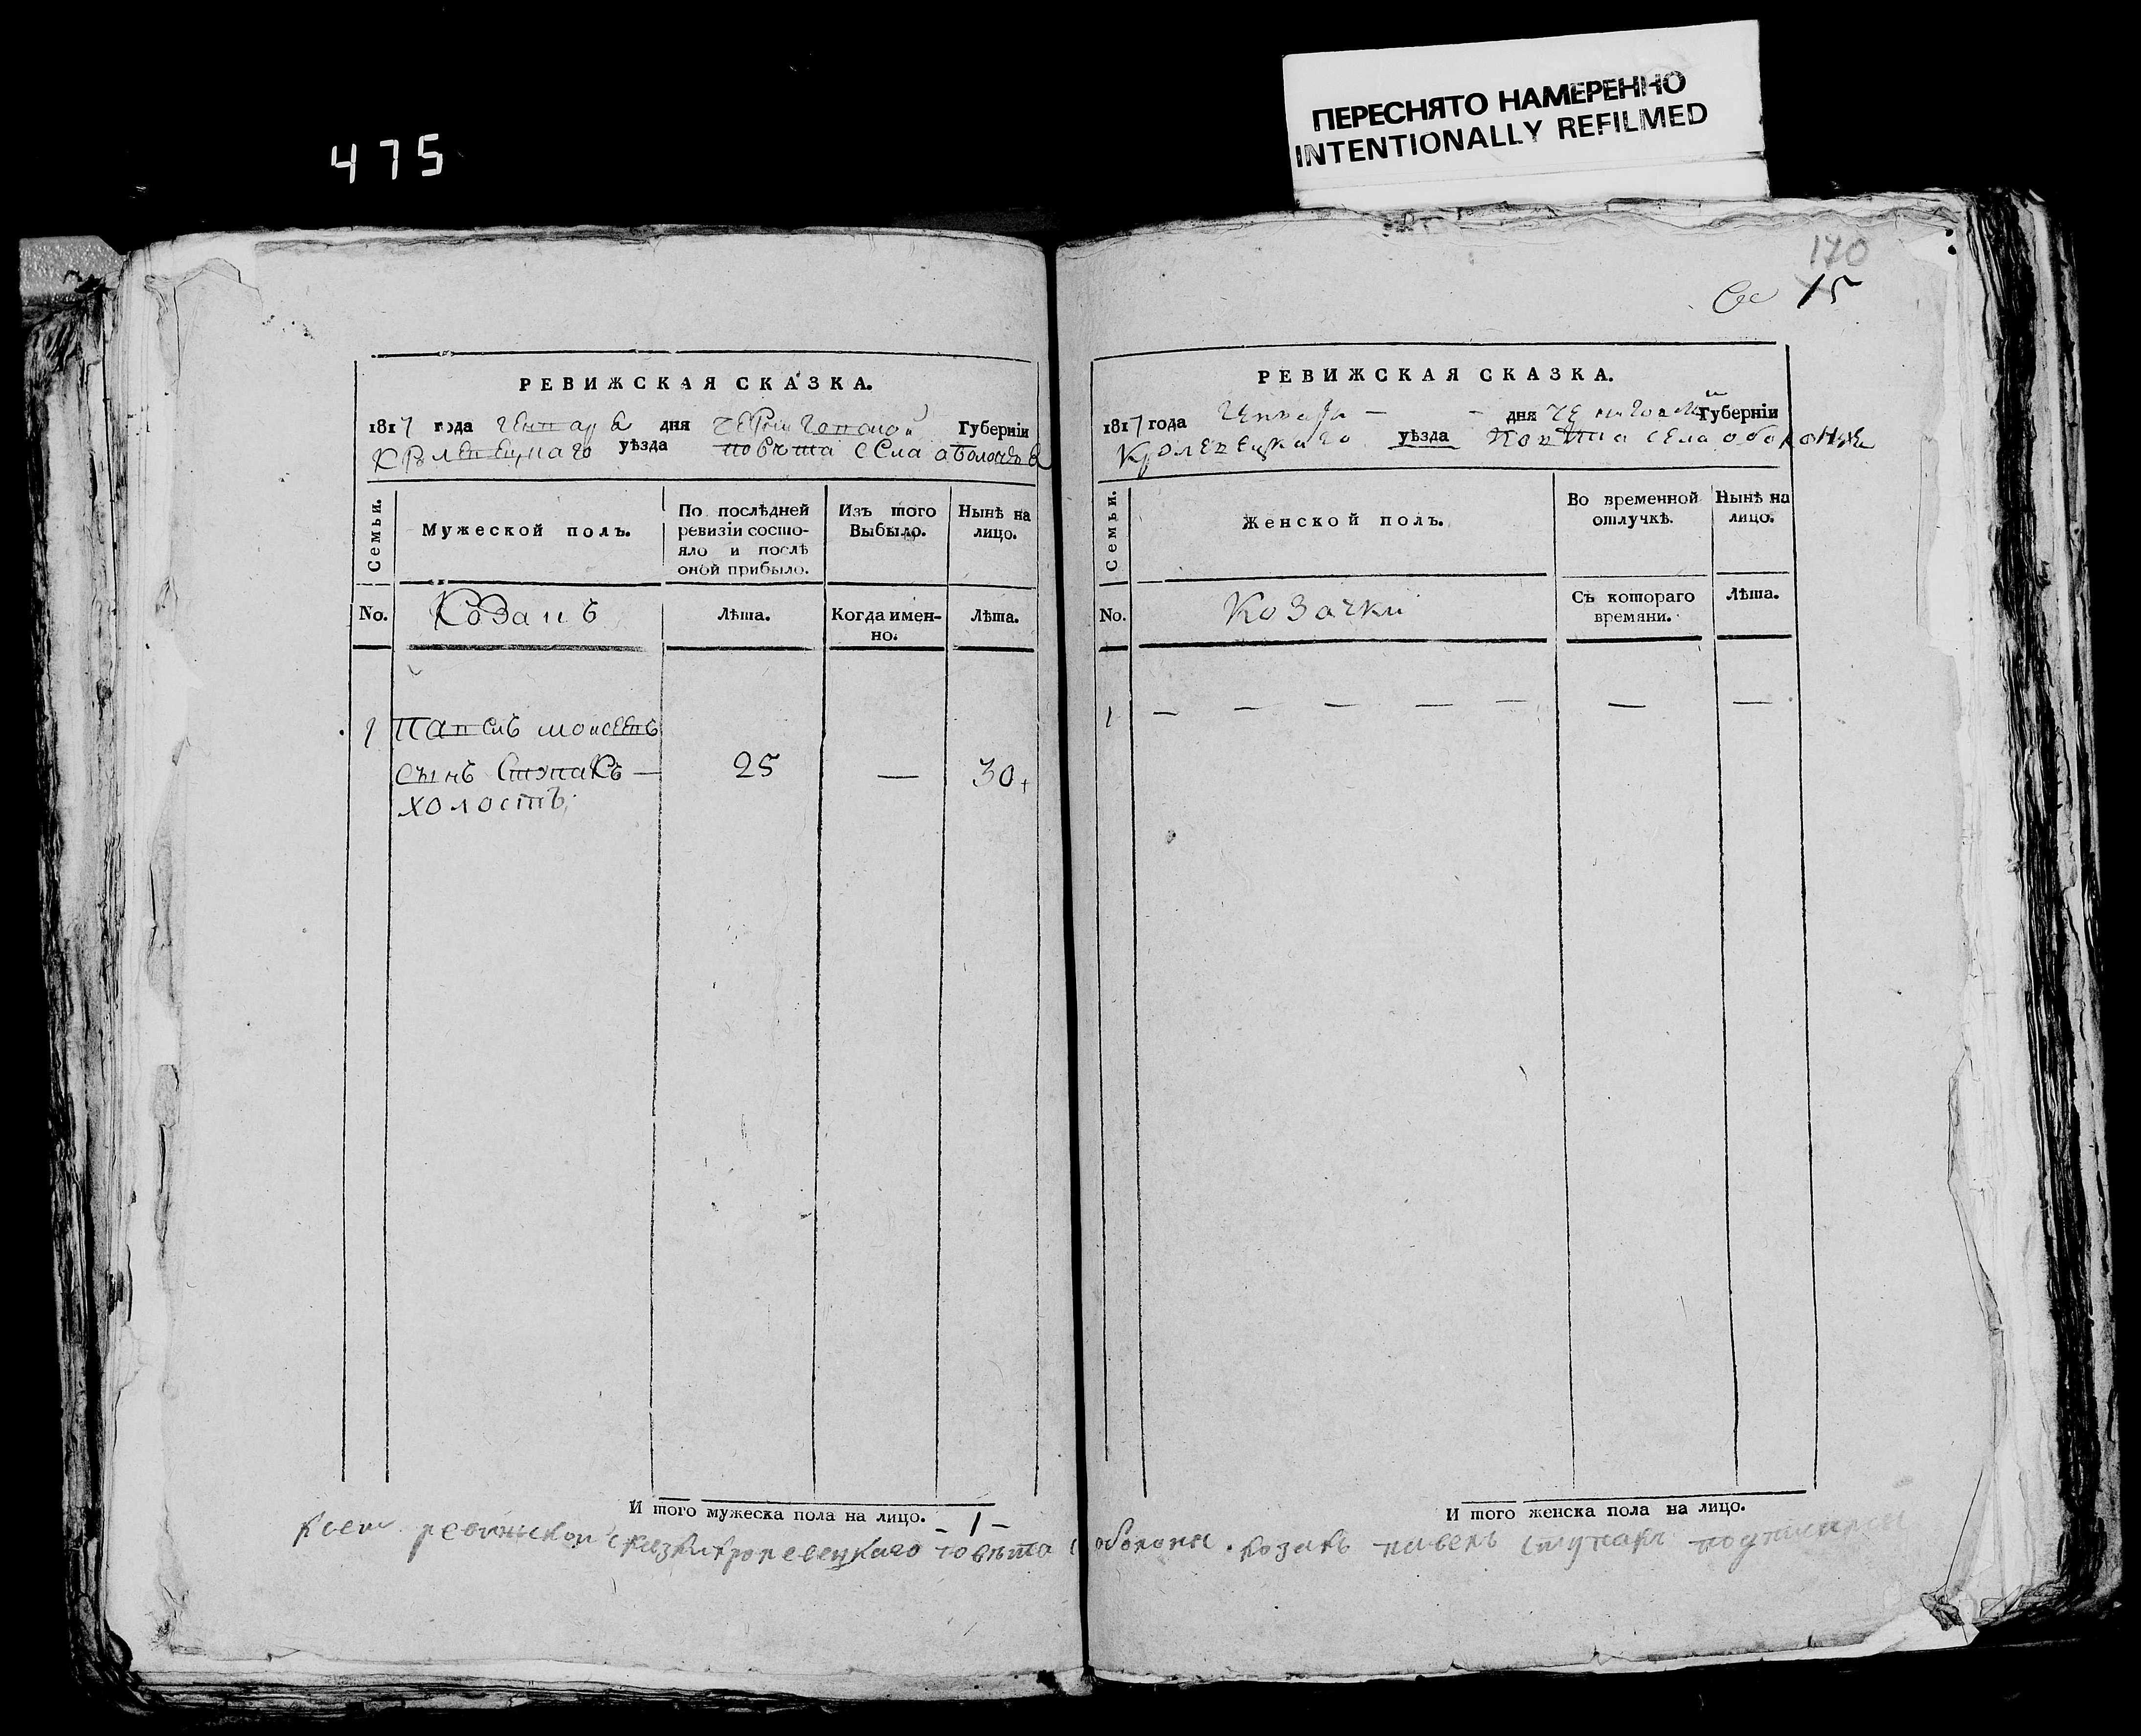 475
ПЕРЕСНЯТО НАМЕРЕННО
INTENTIONALLY REFILMED
170
15
РЕВИЖСКАЯ СКАЗКА.
1817 года генваря дня Черниговской Губерніи
Кролевецкаго уѣзда повѣта села Оболонья
Семьи.
Мужеской полъ.
По послѣдней ревизіи состояло и послѣ оной прибыло.
Изъ того Выбыло.
Нынѣ на лицо.
No.
Козакъ
Лѣта.
Когда именно.
Лѣта.
1 Павелъ Моисеевъ
сынъ Ступакъ — 25 — 30
холостъ
И того мужеска пола на лицо. - 1 -
РЕВИЖСКАЯ СКАЗКА.
1817 года генваря — - дня Губерніи
Кролевецкаго уѣзда повѣта села
Семьи.
Женской полъ.
Во временной отлучкѣ.
Нынѣ на лицо.
No.
Козачки
Съ котораго времяни.
Лѣта.
1 — — — — — — —
И того женска пола на лицо.
ревижской сказки кролевецкаго повѣта козакъ павелъ ступакъ